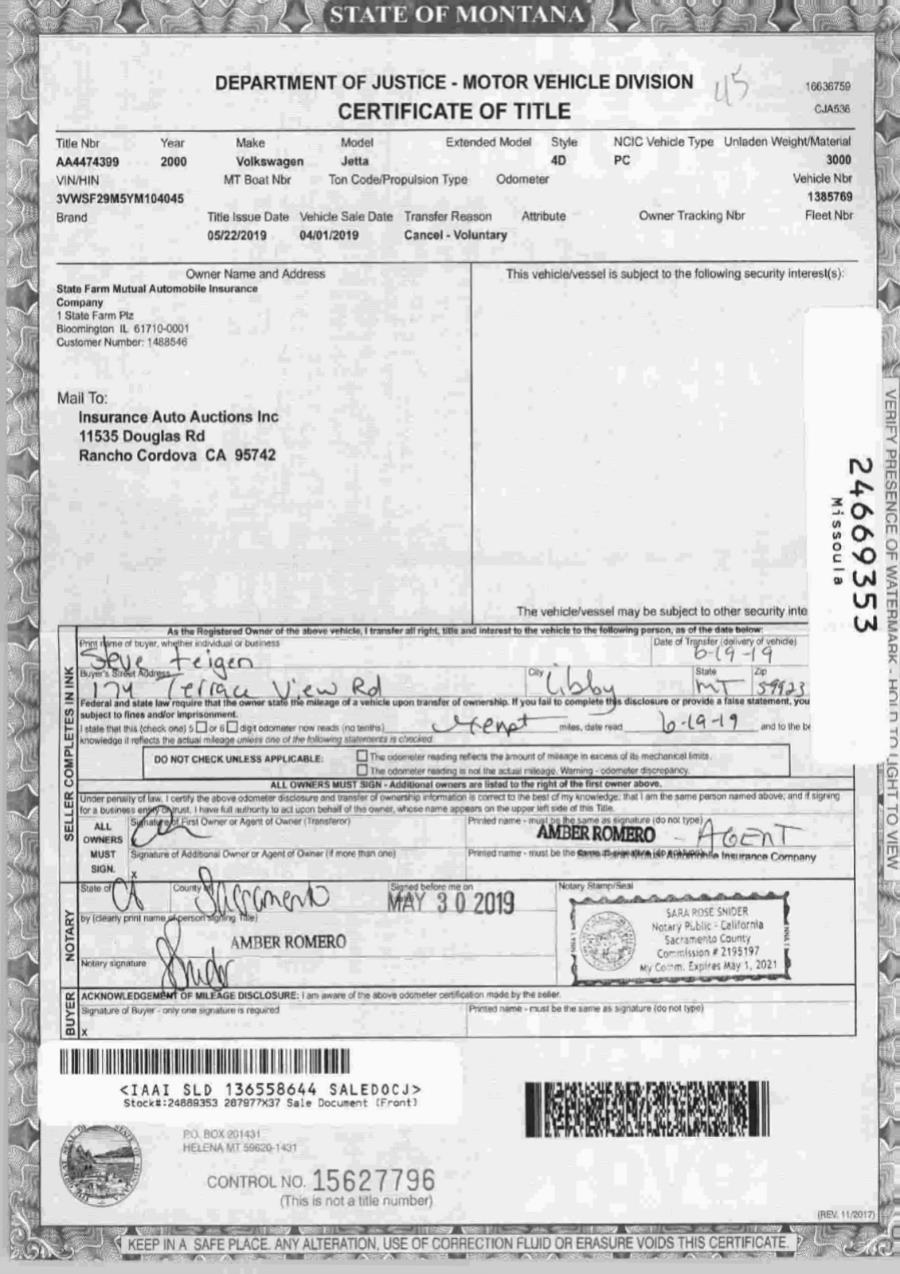 STATE OF MONTANA
DEPARTMENT OF JUSTICE - MOTOR VEHICLE DIVISION
CERTIFICATE OF TITLE
45
16636759
CJA536
Title Nbr Year Make Model Extended Model Style NCIC Vehicle Type Unladen Weight/Material
AA4474399 2000 Volkswagen Jetta 4D PC 3000
VIN/HIN MT Boat Nbr Ton Code/Propulsion Type Odometer Vehicle Nbr
3VWSF29M5YM104045 1385769
Brand Title Issue Date Vehicle Sale Date Transfer Reason Attribute Owner Tracking Nbr Fleet Nbr
05/22/2019 04/01/2019 Cancel - Voluntary
Owner Name and Address
State Farm Mutual Automobile Insurance
Company
1 State Farm Plz
Bloomington IL 61710-0001
Customer Number: 1488546
Mail To:
Insurance Auto Auctions Inc
11535 Douglas Rd
Rancho Cordova CA 95742
This vehicle/vessel is subject to the following security interest(s):
The vehicle/vessel may be subject to other security inte
24669353
Missoula
VERIFY PRESENCE OF WATERMARK - HOLD TO LIGHT TO VIEW
SELLER COMPLETES IN INK
As the Registered Owner of the above vehicle, I transfer all right, title and interest to the vehicle to the following person, as of the date below:
Print name of buyer, whether individual or business Date of Transfer (delivery of vehicle)
Feigen 6-19-19
Buyer's Street Address City State Zip
174 Terrace View Rd Libby MT 59923
Federal and state law require that the owner state the mileage of a vehicle upon transfer of ownership. If you fail to complete this disclosure or provide a false statement, you
subject to fines and/or imprisonment.
I state that this (check one) 5 or 6 digit odometer now reads (no tenths) miles, date read 6-19-19 and to the be
knowledge it reflects the actual mileage unless one of the following statements is checked
DO NOT CHECK UNLESS APPLICABLE:
The odometer reading reflects the amount of mileage in excess of its mechanical limits.
The odometer reading is not the actual mileage. Warning - odometer discrepancy.
ALL OWNERS MUST SIGN - Additional owners are listed to the right of the first owner above.
Under penalty of law, I certify the above odometer disclosure and transfer of ownership information is correct to the best of my knowledge; that I am the same person named above; and if signing
for a business entity or trust, I have full authority to act upon behalf of this owner, whose name appears on the upper left side of this Title.
ALL
OWNERS
MUST
SIGN.
Signature of First Owner or Agent of Owner (Transferor)
Printed name - must be the same as signature (do not type)
AMBER ROMERO - AGENT
Signature of Additional Owner or Agent of Owner (if more than one)
x
Printed name - must be the Insurance Company
NOTARY
State of CA County of Sacramento
Signed before me on
MAY 30 2019
by (clearly print name of person signing Title)
AMBER ROMERO
Notary signature
Snider
Notary Stamp/Seal
SARA ROSE SNIDER
Notary Public - California
Sacramento County
Commission # 2195197
My Comm. Expires May 1, 2021
BUYER
ACKNOWLEDGEMENT OF MILEAGE DISCLOSURE: I am aware of the above odometer certification made by the seller.
Signature of Buyer - only one signature is required Printed name - must be the same as signature (do not type)
x
<IAAI SLD 136558644 SALEDOCJ>
Stock#:24669353 287977X37 Sale Document (Front)
P.O. BOX 201431
HELENA MT 59620-1431
CONTROL NO. 15627796
(This is not a title number)
(REV. 11/2017)
KEEP IN A SAFE PLACE. ANY ALTERATION, USE OF CORRECTION FLUID OR ERASURE VOIDS THIS CERTIFICATE.